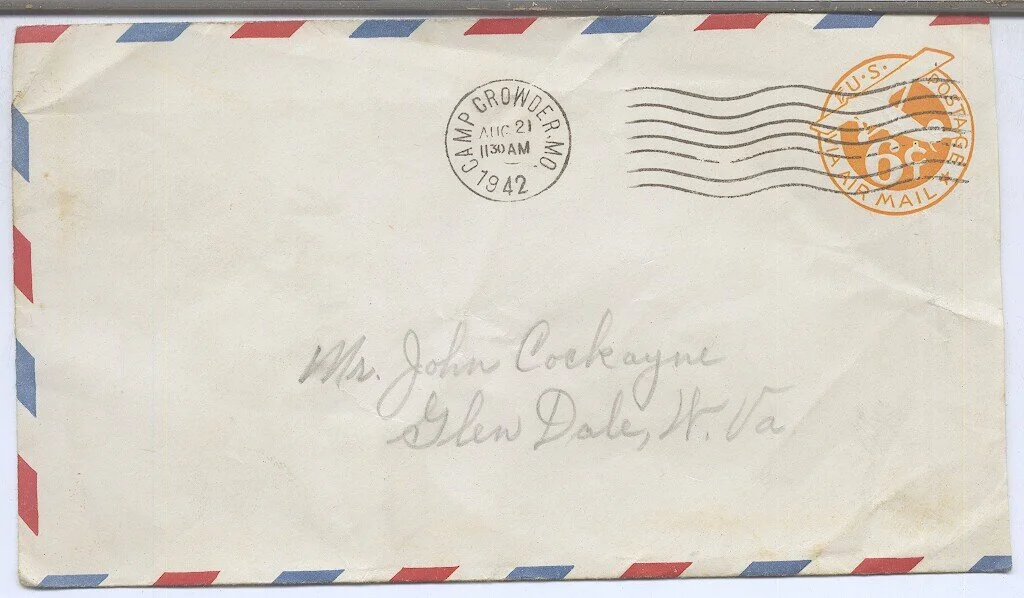 CAMP CROWDER. MO.
AUG 21
1130 AM
1942
U.S. POSTAGE
6¢
VIA AIR MAIL
Mr. John Cockayne
Glen Dale, W. Va